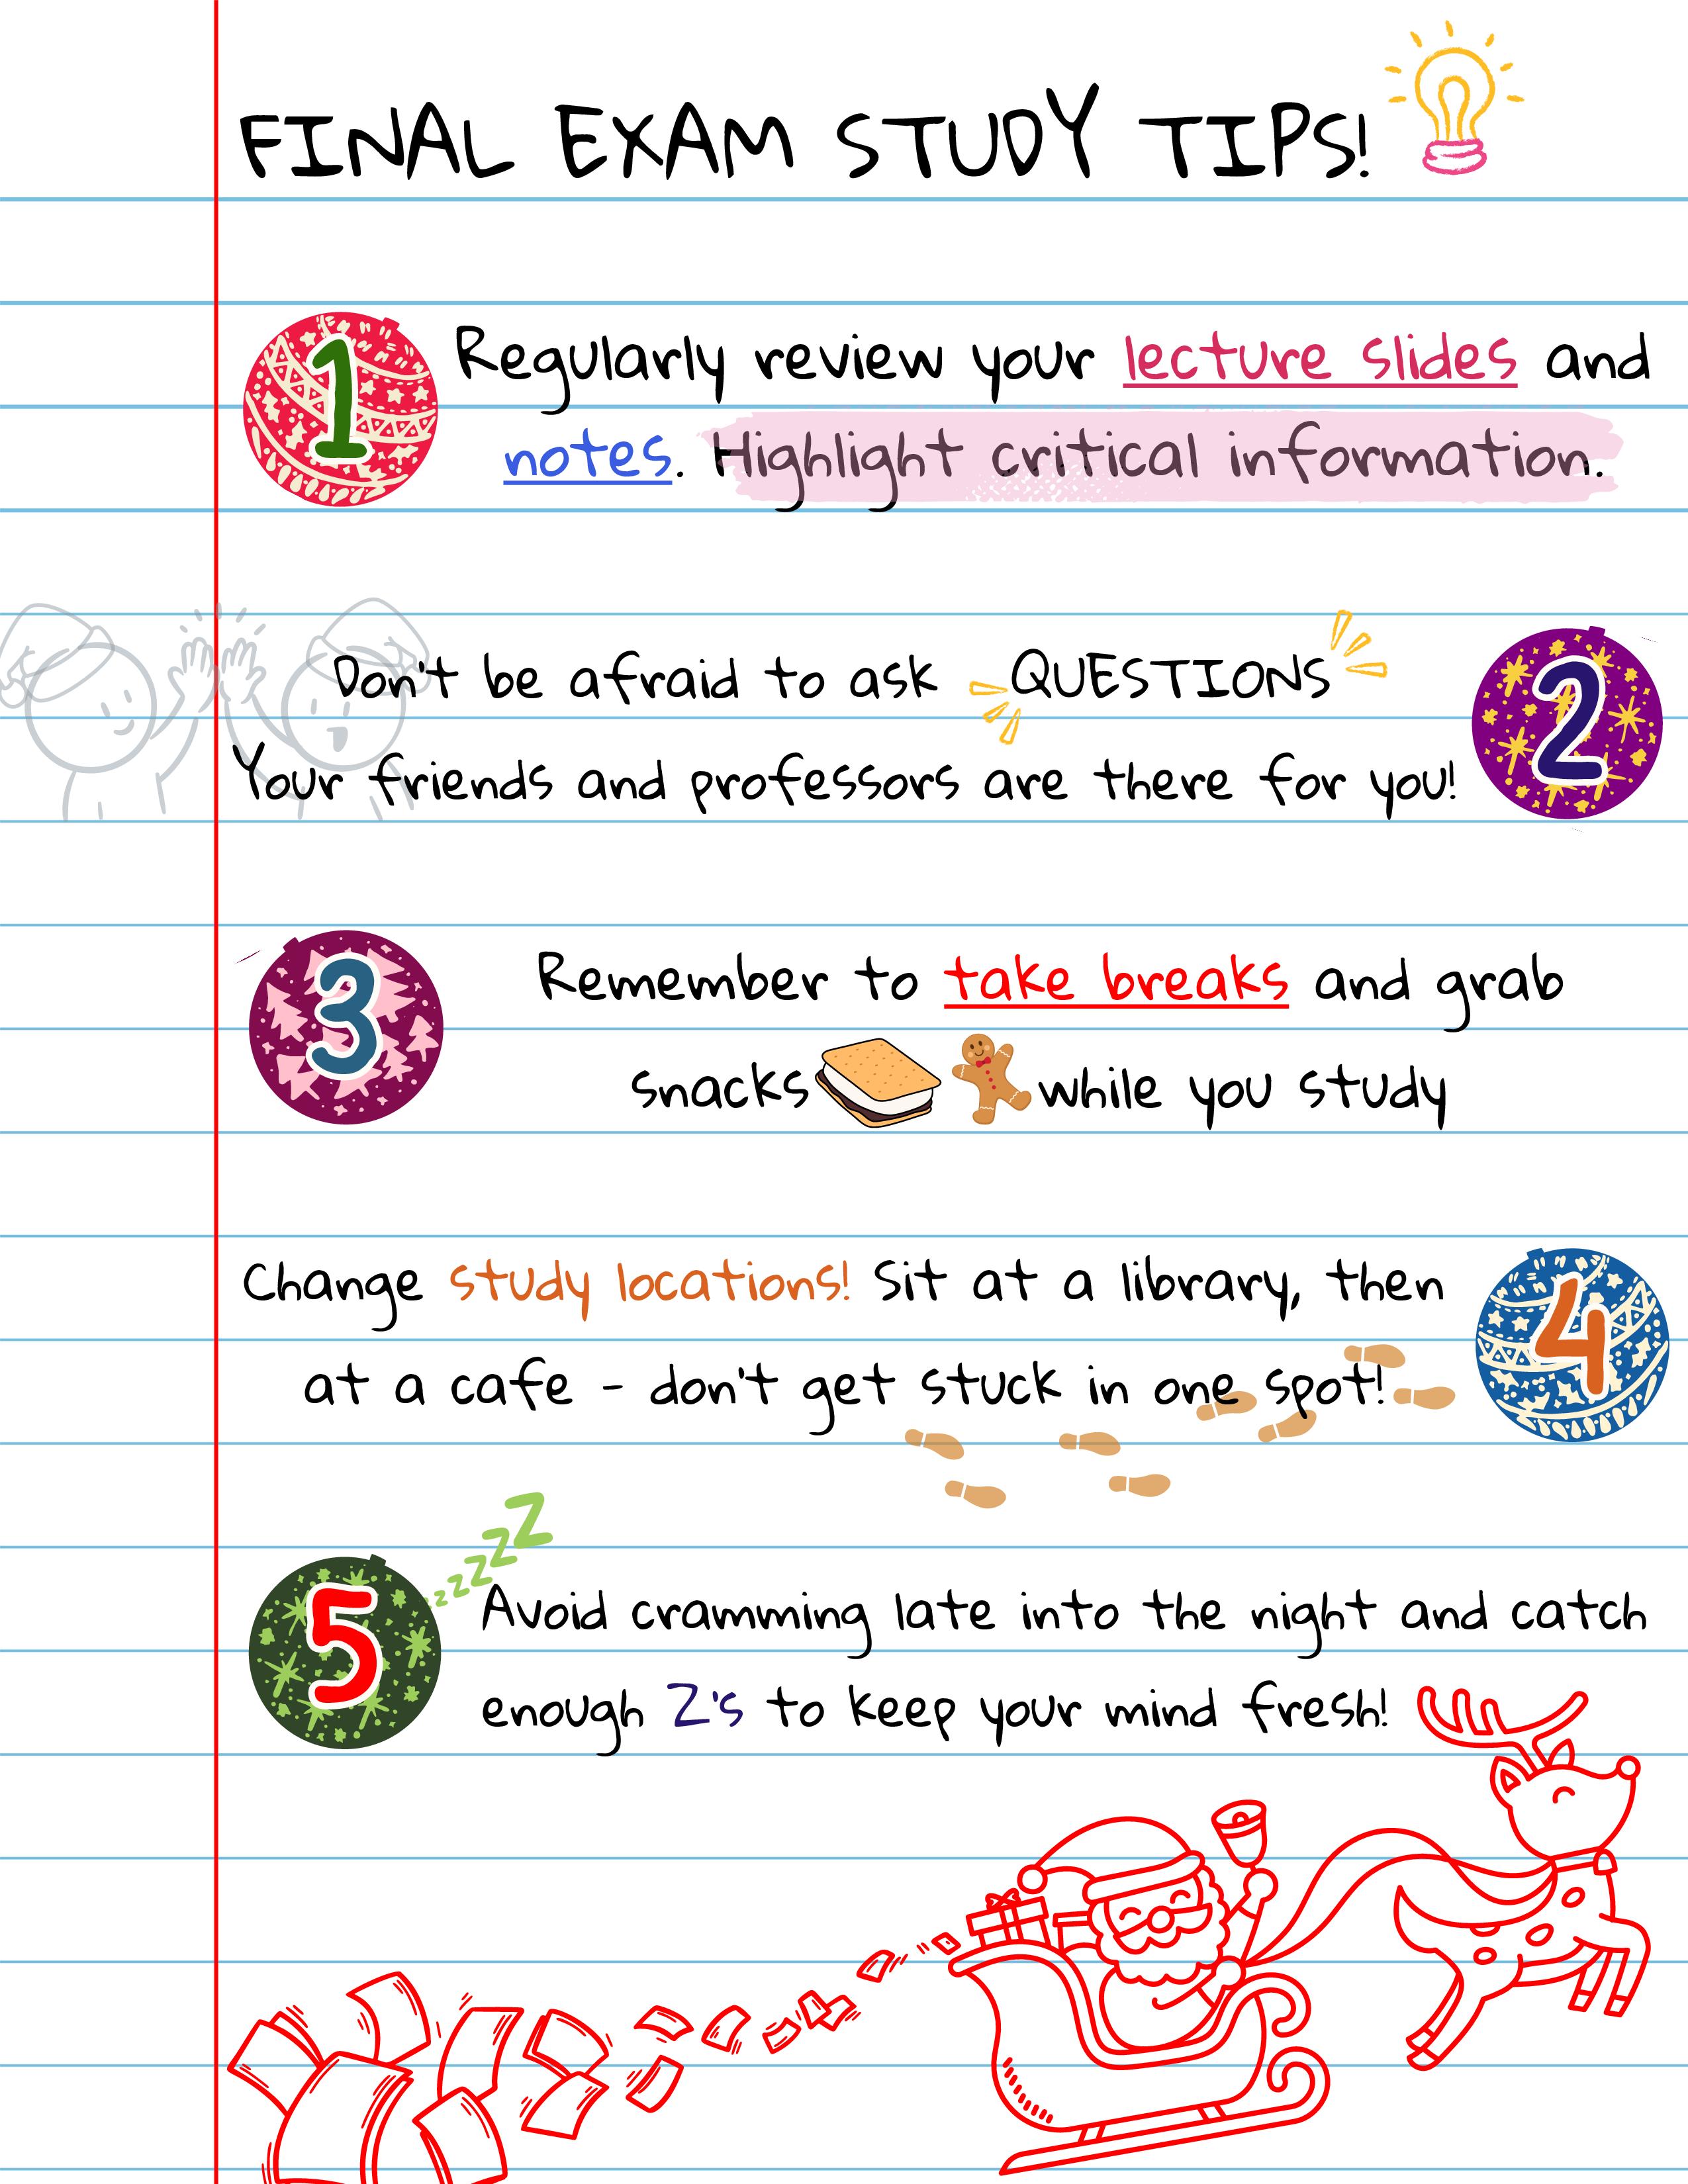 FINAL EXAM STUDY TIPS!
1
Regularly review your lecture slides and
notes. Highlight critical information.
Don't be afraid to ask QUESTIONS
2
Your friends and professors are there for you!
3
Remember to take breaks and grab
snacks while you study
Change study locations! Sit at a library, then
4
at a cafe - don't get stuck in one spot!
zzzzZ
5
Avoid cramming late into the night and catch
enough Z's to keep your mind fresh!